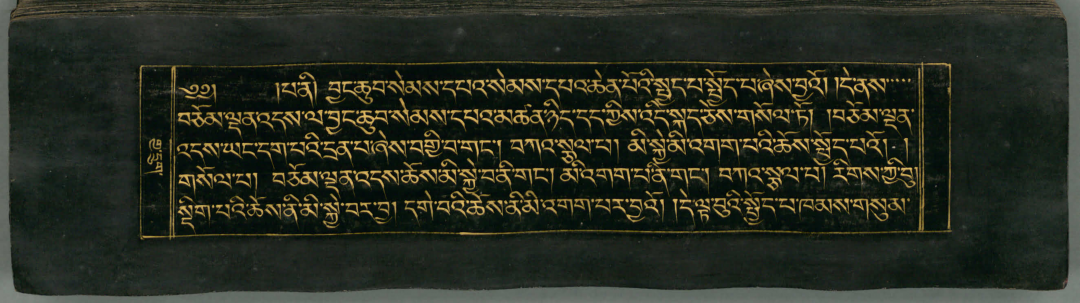 ༄༅། །པ་ནི། བྱང་ཆུབ་སེམས་དཔའ་སེམས་དཔའ་ཆེན་པོའི་སྤྱད་པ་སྤྱོད་པ་ཞེས་བྱའོ། །དེ་ནས་
བཅོམ་ལྡན་འདས་ལ་བྱང་ཆུབ་སེམས་དཔའ་མཚན་ཉིད་དང་གྱིས་འདི་སྐད་ཅེས་གསོལ་ཏོ། །བཅོམ་ལྡན་
འདས་ཡང་དག་པའི་དྲན་པ་ཞེས་བགྱི་བ་གང་། བཀའ་སྩལ་པ། མི་སྐྱེ་མི་འགག་པའི་ཆོས་སྤྱོད་པའོ། །
གསོལ་པ། བཅོམ་ལྡན་འདས་ཆོས་མི་སྐྱེ་བ་ནི་གང་། མི་འགག་པ་ནི་གང་། བཀའ་སྩལ་པ། རིགས་ཀྱི་བུ།
སྡིག་པའི་ཆོས་ནི་མི་སྐྱེ་བར་བྱ། དགེ་བའི་ཆོས་ནི་མི་འགག་པར་བྱའོ། །དེ་ལྟ་བུའི་སྤྱོད་པ་ཁམས་གསུམ་